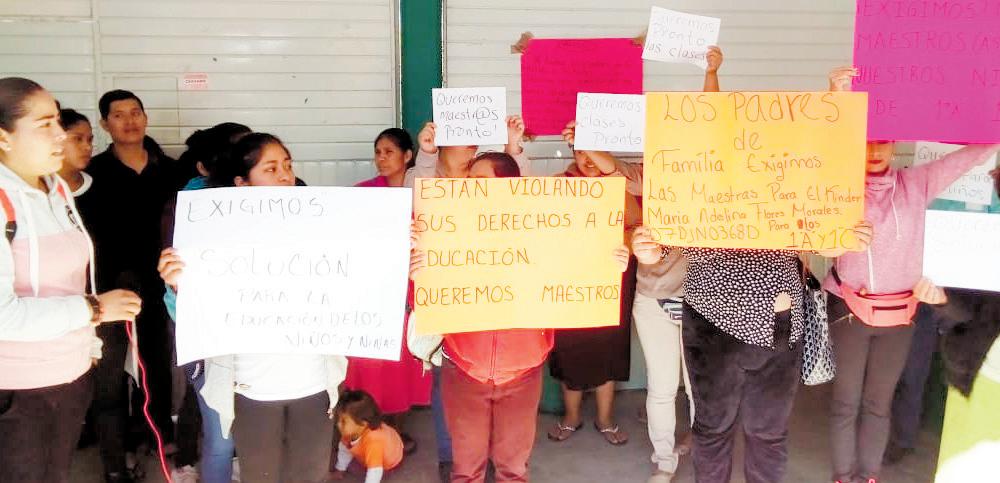 EXIGIMOS
SOLUCIÓN
PARA LA
EDUCACIÓN DE LOS
NIÑOS Y NIÑAS
Queremos
maestr@s
Pronto!
ESTÁN VIOLANDO
SUS DERECHOS A LA
EDUCACIÓN.
QUEREMOS MAESTROS
Queremos
clases
Pronto
Queremos
Pronto
las clases
LOS Padres
de
Familia Exigimos
Las Maestras Para El Kinder
Maria Adelina Flores Morales.
07DJN0368D Para los
1A Y 1C
EXIGIMOS
MAESTROS(AS
NUESTROS NI
DE 1°A